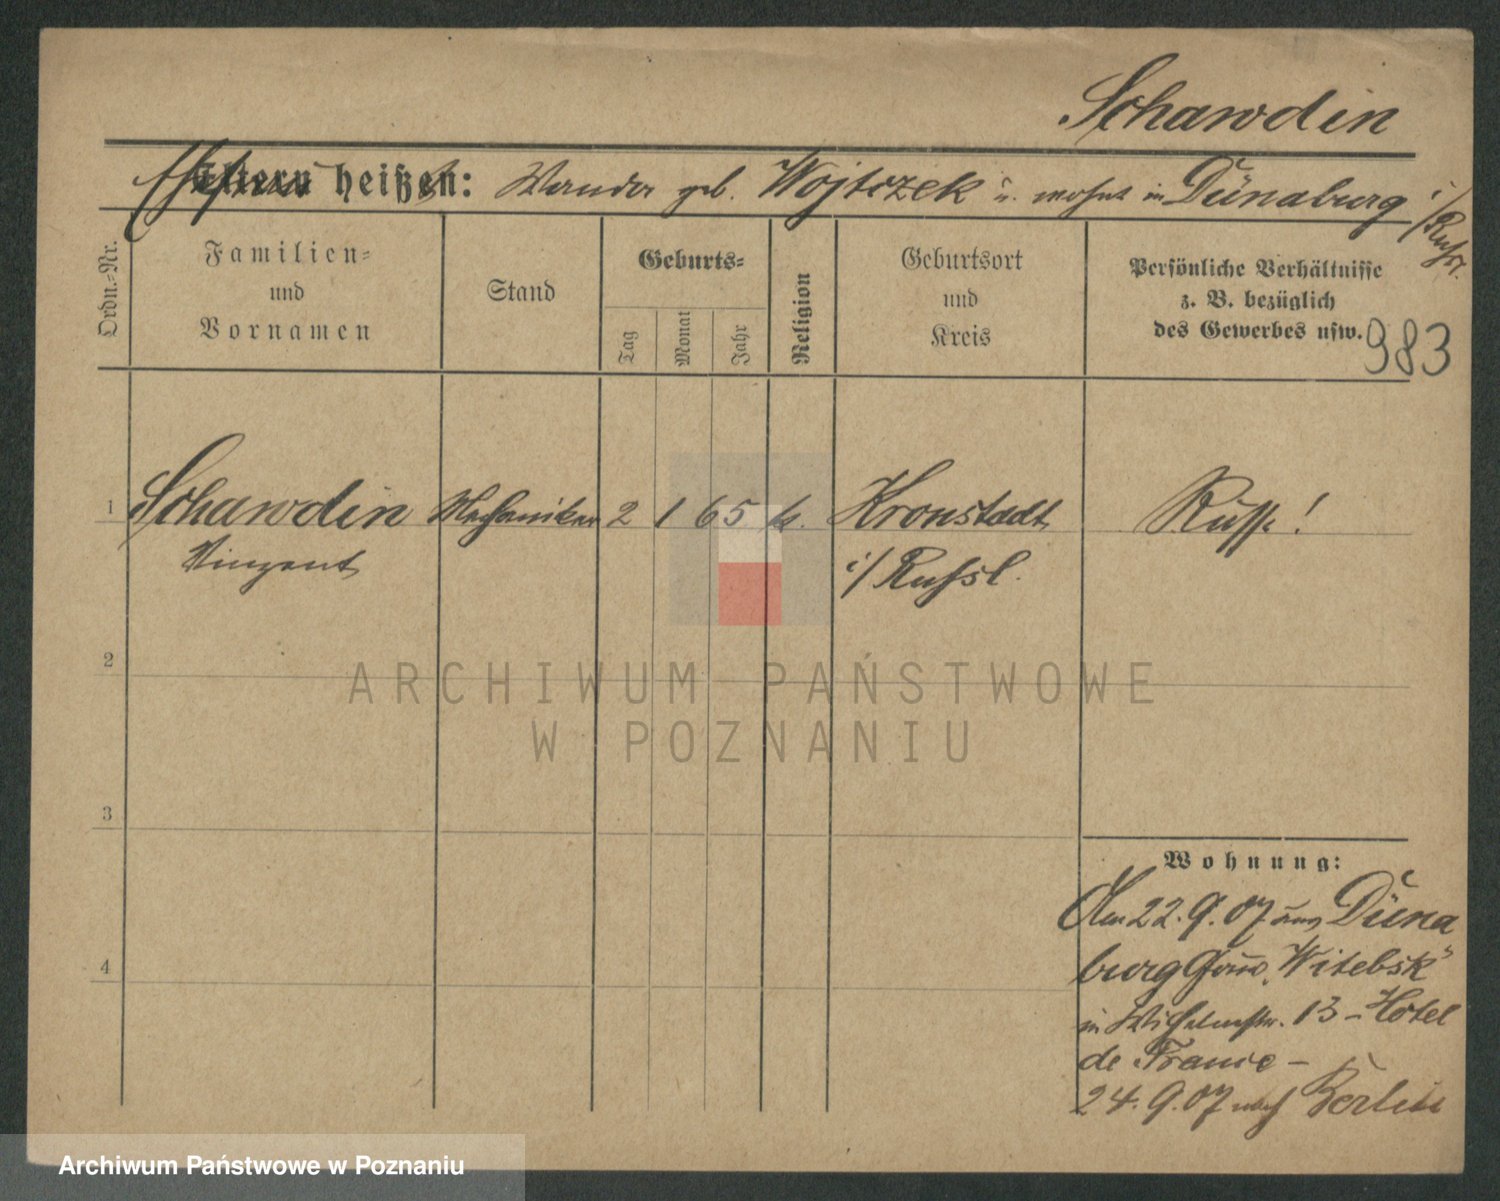 Schawdin
Ehefrau heißt: Wanda geb. Wojtczek u. wohnt in Dünaburg i/Russl.
Ordn.-Nr.
Familien-
und
Vornamen
Stand
Geburts-
Tag
Monat
Jahr
Religion
Geburtsort
und
Kreis
Persönliche Verhältnisse
z. B. bezüglich
des Gewerbes usw.
983
1 Schawdin Mechaniker 2 1 65 k. Kronstadt Russe!
Vinzent i/Russl.
2
ARCHIWUM PAŃSTWOWE
W POZNANIU
3
Wohnung:
Am 22.9.07 aus Düna
burg Gouv. "Witebsk"
4
in Wilhelmstr. 13 – Hotel
de France –
24.9.07 nach Berlin
Archiwum Państwowe w Poznaniu